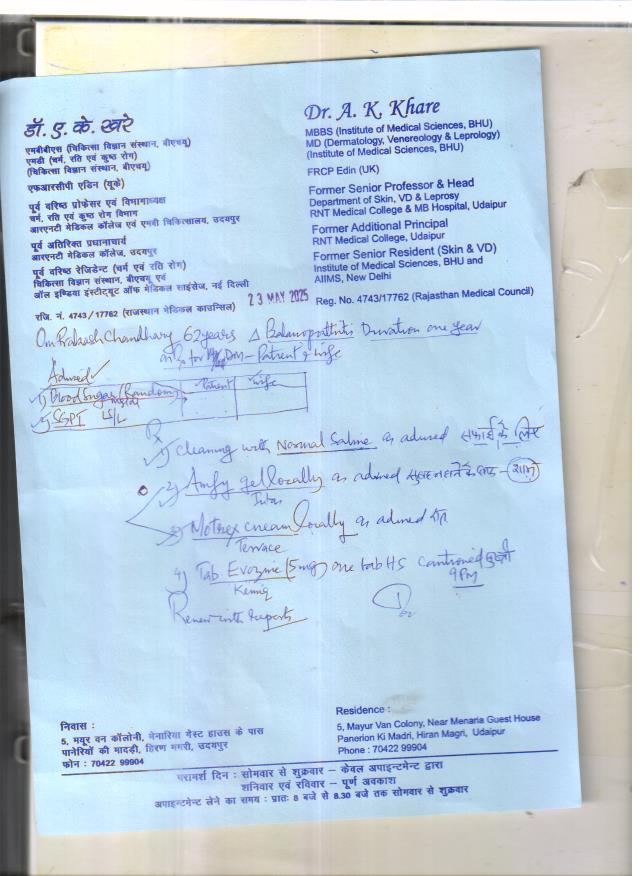 डॉ. ए. के. खरे
एमबीबीएस (चिकित्सा विज्ञान संस्थान, बीएचयू)
एमडी (चर्म, रति एवं कुष्ठ रोग)
(चिकित्सा विज्ञान संस्थान, बीएचयू)
एफआरसीपी एडिन (यूके)
पूर्व वरिष्ठ प्रोफेसर एवं विभागाध्यक्ष
चर्म, रति एवं कुष्ठ रोग विभाग
आरएनटी मेडिकल कॉलेज एवं एमबी चिकित्सालय, उदयपुर
पूर्व अतिरिक्त प्रधानाचार्य
आरएनटी मेडिकल कॉलेज, उदयपुर
पूर्व वरिष्ठ रेजिडेन्ट (चर्म एवं रति रोग)
चिकित्सा विज्ञान संस्थान, बीएचयू एवं
ऑल इण्डिया इंस्टीट्यूट ऑफ मेडिकल साइंसेज, नई दिल्ली
रजि. नं. 4743/17762 (राजस्थान मेडिकल काउन्सिल)
Dr. A. K. Khare
MBBS (Institute of Medical Sciences, BHU)
MD (Dermatology, Venereology & Leprology)
(Institute of Medical Sciences, BHU)
FRCP Edin (UK)
Former Senior Professor & Head
Department of Skin, VD & Leprosy
RNT Medical College & MB Hospital, Udaipur
Former Additional Principal
RNT Medical College, Udaipur
Former Senior Resident (Skin & VD)
Institute of Medical Sciences, BHU and
AIIMS, New Delhi
Reg. No. 4743/17762 (Rajasthan Medical Council)
23 MAY 2025
Om Prakash Chandhary 62 years Δ Balanoposthitis Duration one year
for DM - Patient & wife
Advised
1) Blood Sugar (Random) Patient Wife
SGPT
Rx
1) Cleaning with Normal Saline as advised सफाई के लिए
2) Amfy gel locally as advised
Intas
3) Motrex cream locally as advised
Terrace
4) Tab Evozine (5mg) one tab HS
9PM
Review with reports
निवास :
5, मयूर वन कॉलोनी, मेनारिया गेस्ट हाउस के पास
पानेरियों की मादड़ी, हिरण मगरी, उदयपुर
फोन : 70422 99904
Residence :
5, Mayur Van Colony, Near Menaria Guest House
Panerion Ki Madri, Hiran Magri, Udaipur
Phone : 70422 99904
परामर्श दिन : सोमवार से शुक्रवार – केवल अपाइन्टमेन्ट द्वारा
शनिवार एवं रविवार – पूर्ण अवकाश
अपाइन्टमेन्ट लेने का समय : प्रातः 8 बजे से 8.30 बजे तक सोमवार से शुक्रवार